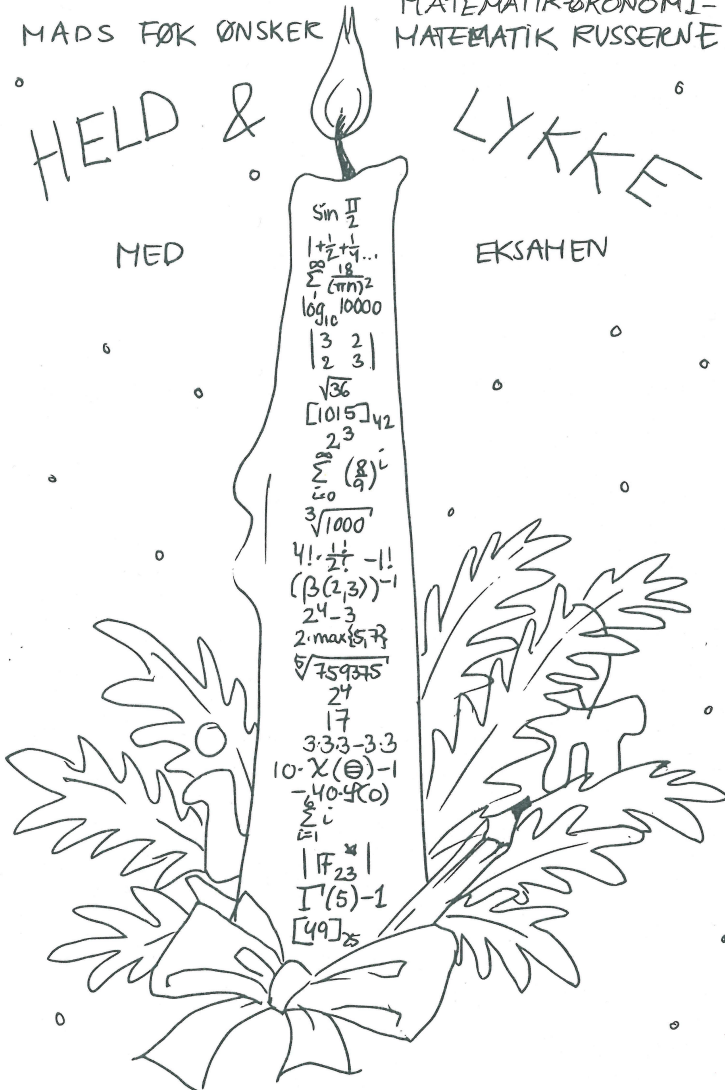 MADS FØK ØNSKER
MATEMATIK-ØKONOMI-
MATEMATIK RUSSERNE
HELD & LYKKE
MED EKSAMEN
sin π/2
1+1/2+1/4...
∑_1^∞ 18/(πn)²
log₁₀ 10000
|3 2|
|2 3|
√36
[1015]₄₂
2³
∑_{i=0}^∞ (8/9)^i
³√1000
4!·1!/2! -1!
(β(2,3))⁻¹
2⁴-3
2·max{5,7}
⁵√759375
2⁴
17
3·3·3-3·3
10·χ(⊖)-1
-40·φ(0)
∑_{i=1}^6 i
|𝔽₂₃*|
Γ(5)-1
[49]₂₅